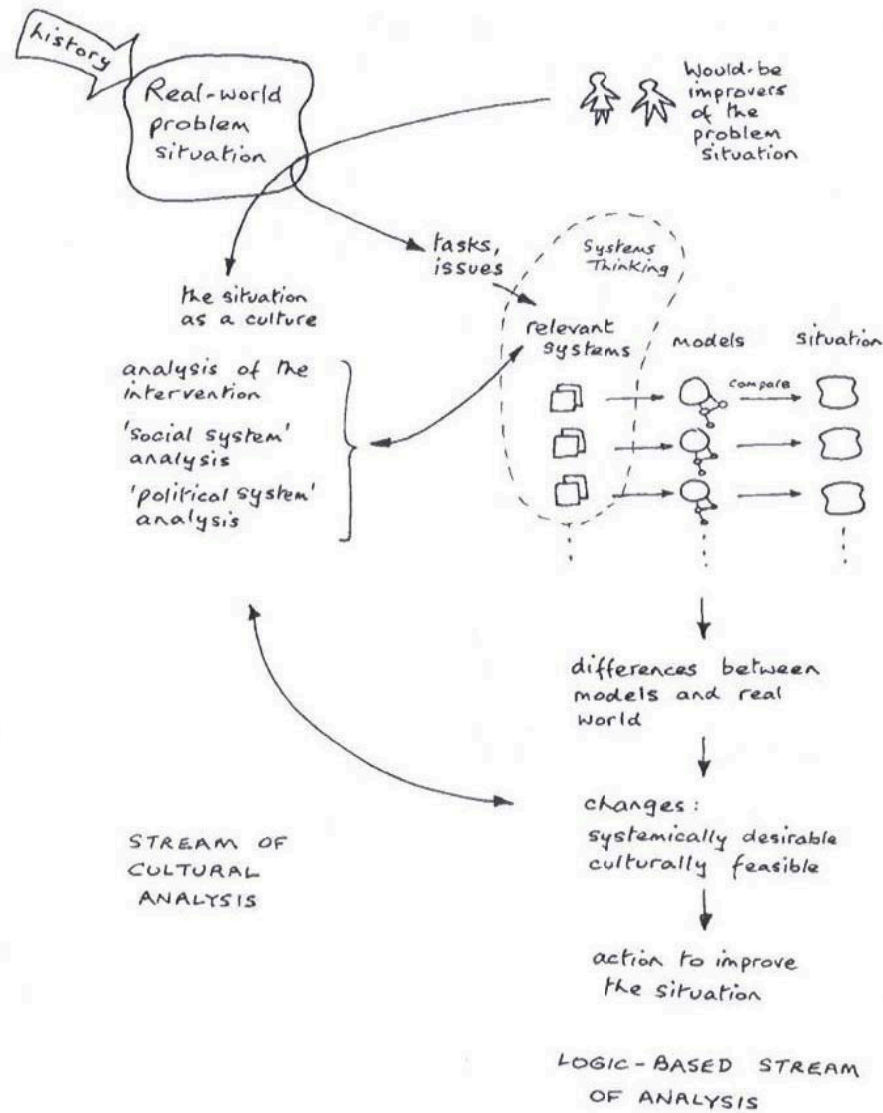 history
Real-world
problem
situation
Would-be
improvers
of the
problem
situation
tasks,
issues
Systems
Thinking
the situation
as a culture
relevant
systems
models
situation
compare
analysis of the
intervention
'social system'
analysis
'political system'
analysis
differences between
models and real
world
changes:
systemically desirable
culturally feasible
STREAM OF
CULTURAL
ANALYSIS
action to improve
the situation
LOGIC-BASED STREAM
OF ANALYSIS